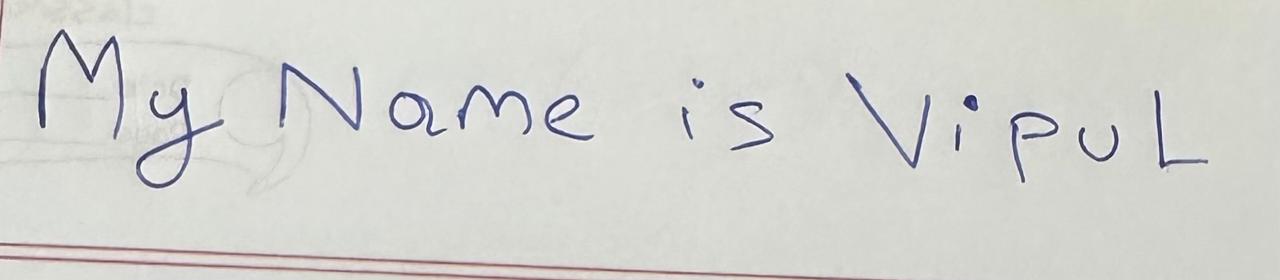 My Name is VipuL